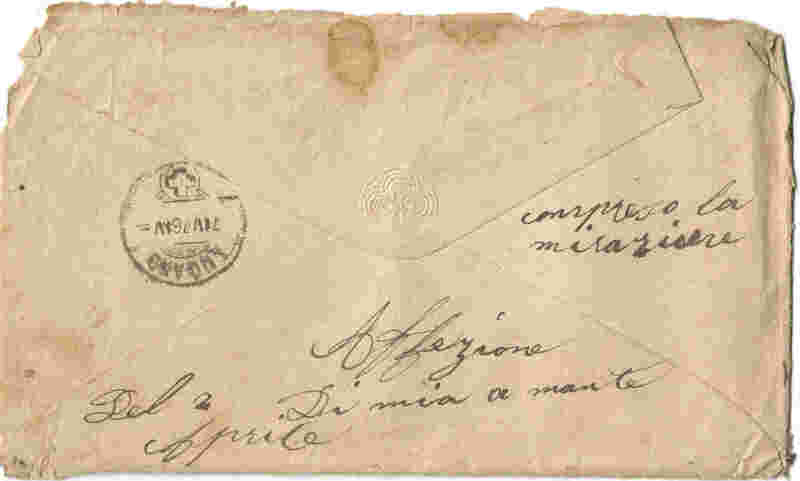 LUGANO
compreso la
mirazione
Affezione
Del 2 Di mia a mante
Aprile